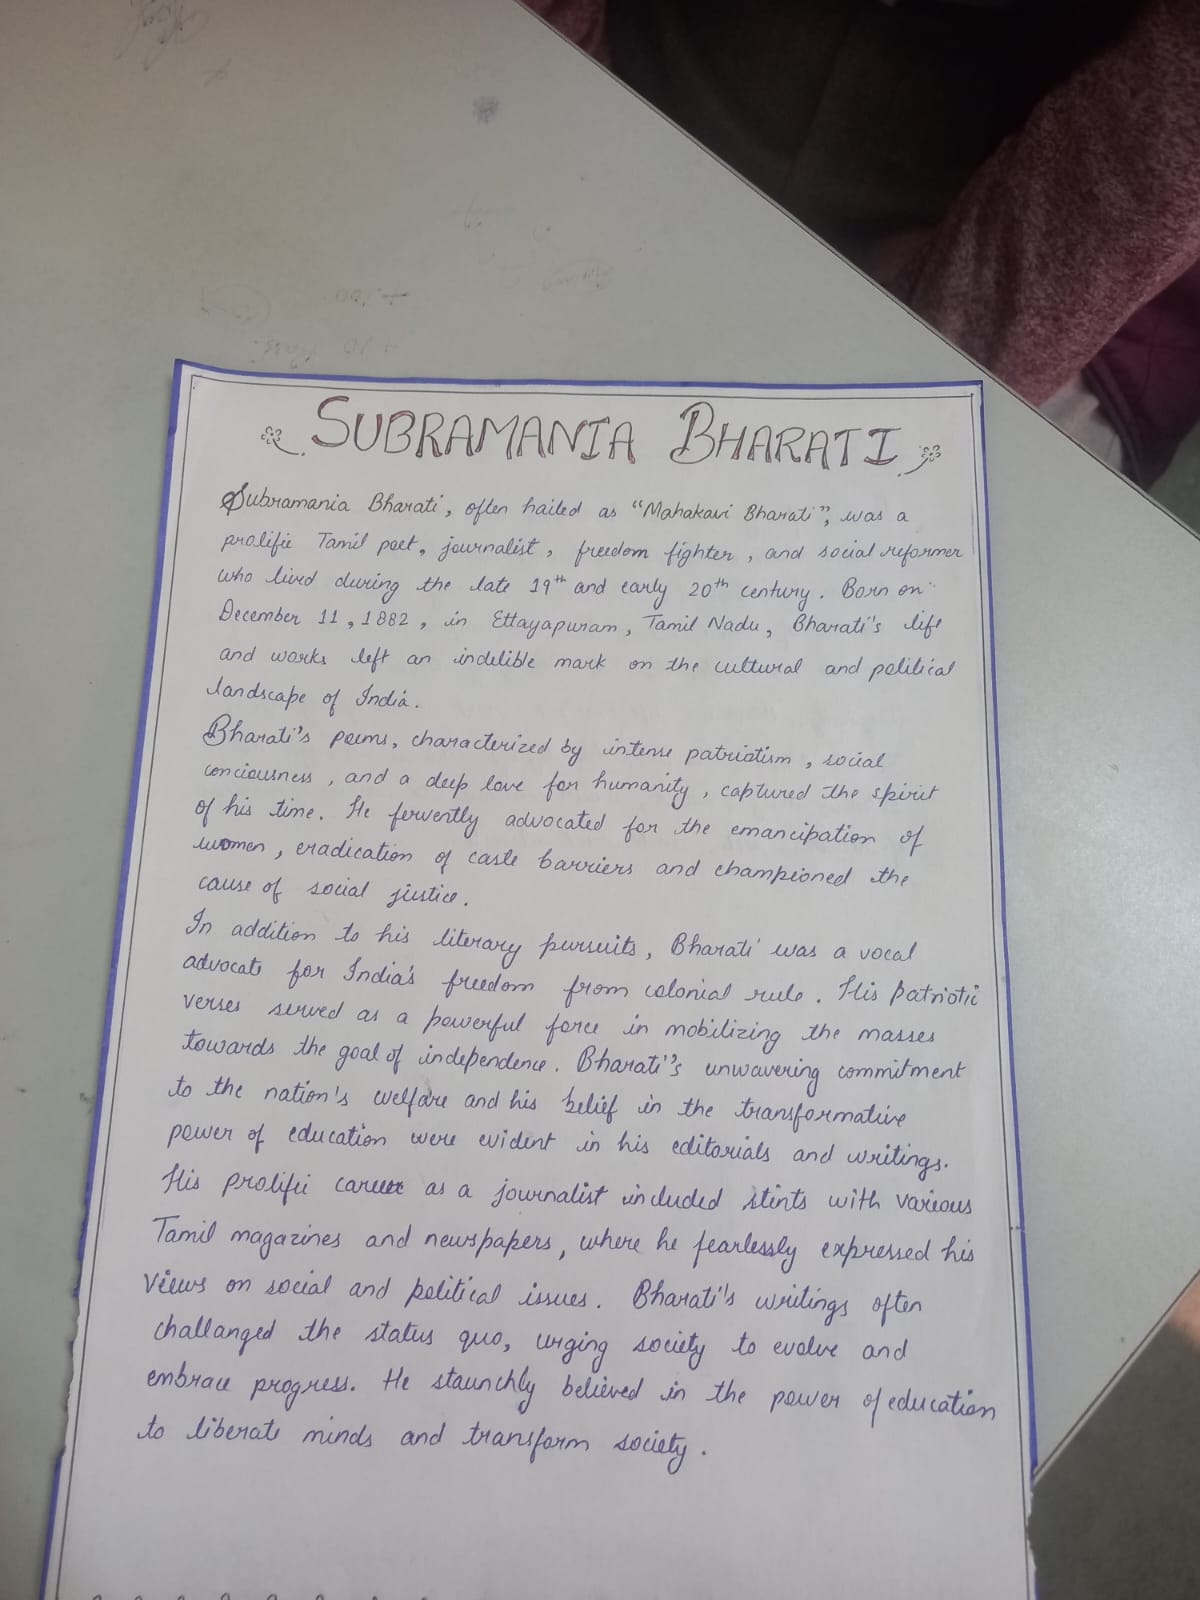 SUBRAMANIA BHARATI
Subramania Bharati, often hailed as "Mahakavi Bharati", was a
prolific Tamil poet, journalist, freedom fighter, and social reformer
who lived during the late 19th and early 20th century. Born on
December 11, 1882, in Ettayapuram, Tamil Nadu, Bharati's life
and works left an indelible mark on the cultural and political
landscape of India.
Bharati's poems, characterized by intense patriotism, social
conciousness, and a deep love for humanity, captured the spirit
of his time. He fervently advocated for the emancipation of
women, eradication of caste barriers and championed the
cause of social justice.
In addition to his literary pursuits, Bharati was a vocal
advocate for India's freedom from colonial rule. His patriotic
verses served as a powerful force in mobilizing the masses
towards the goal of independence. Bharati's unwavering commitment
to the nation's welfare and his belief in the transformative
power of education were evident in his editorials and writings.
His prolific career as a journalist included stints with various
Tamil magazines and newspapers, where he fearlessly expressed his
views on social and political issues. Bharati's writings often
challanged the status quo, urging society to evolve and
embrace progress. He staunchly believed in the power of education
to liberate minds and transform society.